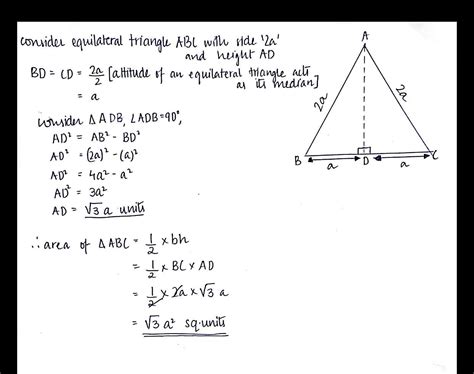 consider equilateral triangle ABC with side '2a'
and height AD
BD = CD = 2a/2 [altitude of an equilateral triangle acts
as its median]
= a
consider △ADB, ∠ADB=90°,
AD² = AB² - BD²
AD² = (2a)² - (a)²
AD² = 4a² - a²
AD² = 3a²
AD = √3 a units
∴ area of △ABC = 1/2 × bh
= 1/2 × BC × AD
= 1/2 × 2a × √3 a
= √3 a² sq.units
A
2a 2a
B D C
a a